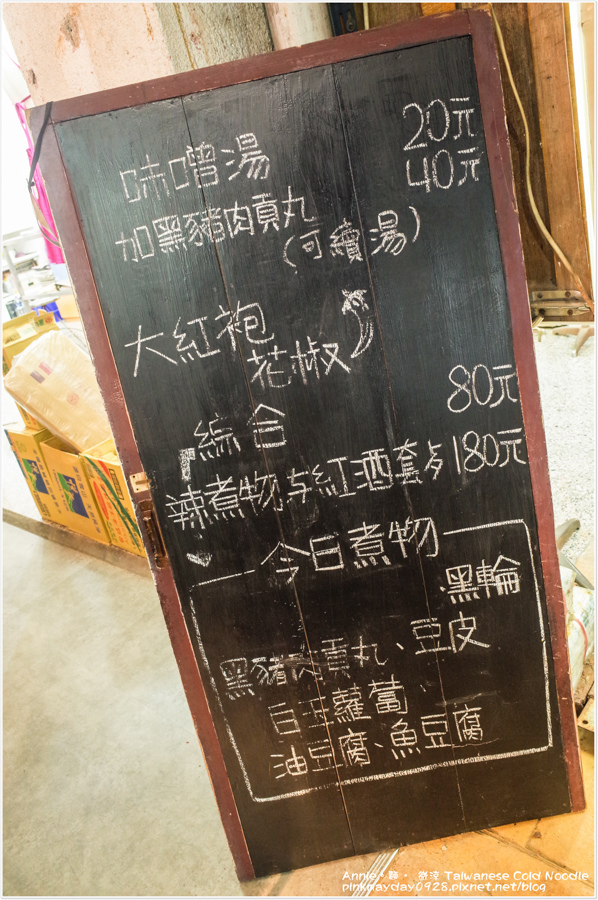 味噌湯 20元
加黑豬肉貢丸 40元
(可續湯)
大紅袍
花椒
綜合 80元
辣煮物与紅酒套歺 180元
今日煮物
黑輪
黑豬肉貢丸、豆皮
白玉蘿蔔
油豆腐、魚豆腐
Taiwanese Cold Noodle
pinkmayday0928.pixnet.net/blog